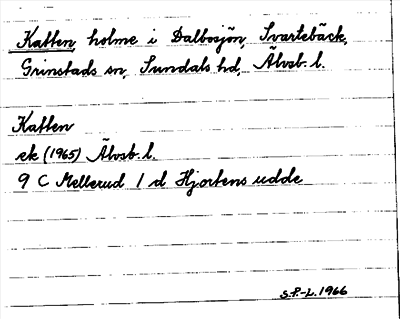 Katten, holme i Dalbosjön, Svartebäck,
Grinstads sn, Sundals hd, Älvsb. l.
Katten
ek (1965) Älvsb. l.
9 C Mellerud 1 d Hjortens udde
S.P.-L. 1966